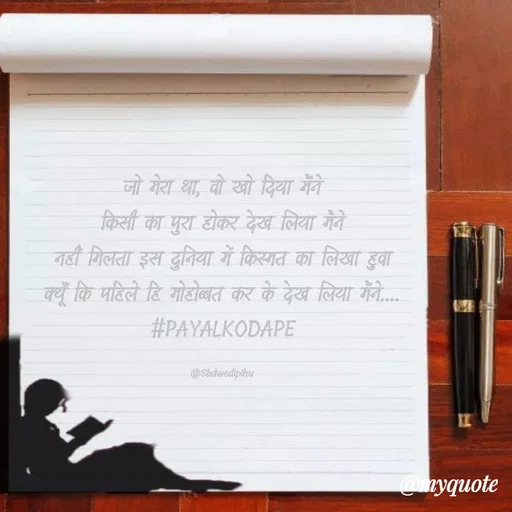 जो मेरा था, वो खो दिया मैंने
किसी का पुरा होकर देख लिया मैंने
नहीं मिलता इस दुनिया में किस्मत का लिखा हुवा
क्यूँ कि पहिले हि मोहोब्बत कर के देख लिया मैंने....
#PAYALKODAPE
@Sbdwedipihu
@myquote